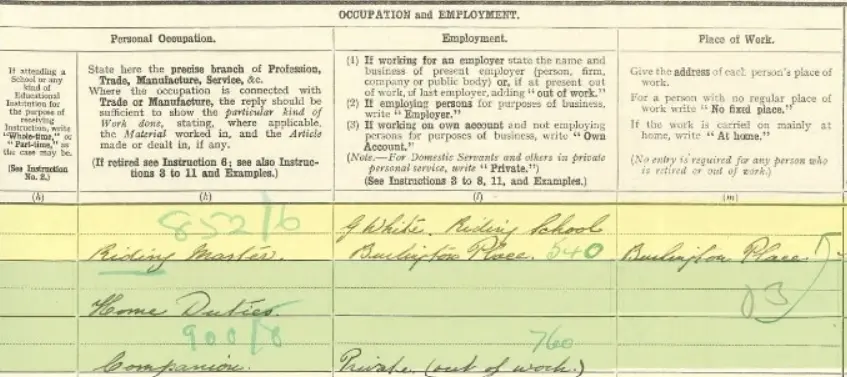 OCCUPATION and EMPLOYMENT.
Personal Occupation.
Employment.
Place of Work.
If attending a
School or any
kind of
Educational
Institution for
the purpose of
receiving
Instruction, write
"Whole-time," or
"Part-time," as
the case may be.
(See Instruction
No. 2.)
State here the precise branch of Profession,
Trade, Manufacture, Service, &c.
Where the occupation is connected with
Trade or Manufacture, the reply should be
sufficient to show the particular kind of
Work done, stating, where applicable,
the Material worked in, and the Article
made or dealt in, if any.
(If retired see Instruction 6; see also Instruc-
tions 3 to 11 and Examples.)
(1) If working for an employer state the name and
business of present employer (person, firm,
company or public body) or, if at present out
of work, of last employer, adding "out of work."
(2) If employing persons for purposes of business,
write "Employer."
(3) If working on own account and not employing
persons for purposes of business, write "Own
Account."
(Note.—For Domestic Servants and others in private
personal service, write "Private.")
(See Instructions 3 to 8, 11, and Examples.)
Give the address of each person's place of
work.
For a person with no regular place of
work write "No fixed place."
If the work is carried on mainly at
home, write "At home."
(No entry is required for any person who
is retired or out of work.)
(k)
(l)
(m)
852/6
G White. Riding School
Riding Master.
Burlington Place. 540
Burlington Place
Home Duties.
900/8
760
Companion.
Private (out of work.)